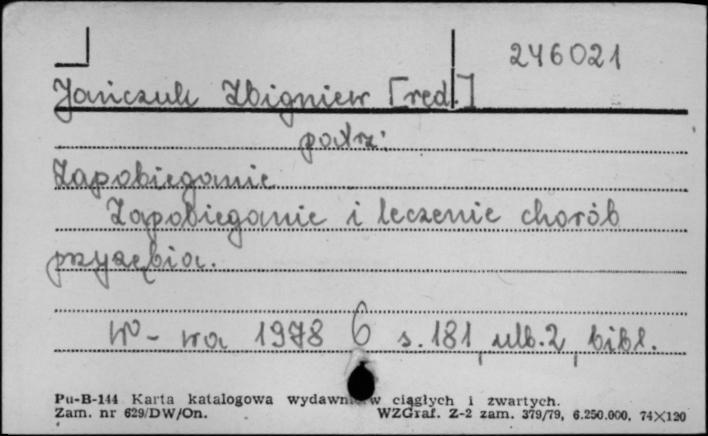 246021
Jańczuk Zbigniew [red.]
patrz:
Zapobieganie
Zapobieganie i leczenie chorób
przyzębia.
W-wa 1978 6 s. 181, ulb. 2, bibl.
Pu-B-144 Karta katalogowa wydawnictw ciągłych i zwartych.
Zam. nr 629/DW/On. WZGraf. Z-2 zam. 379/79, 6.250.000, 74×120